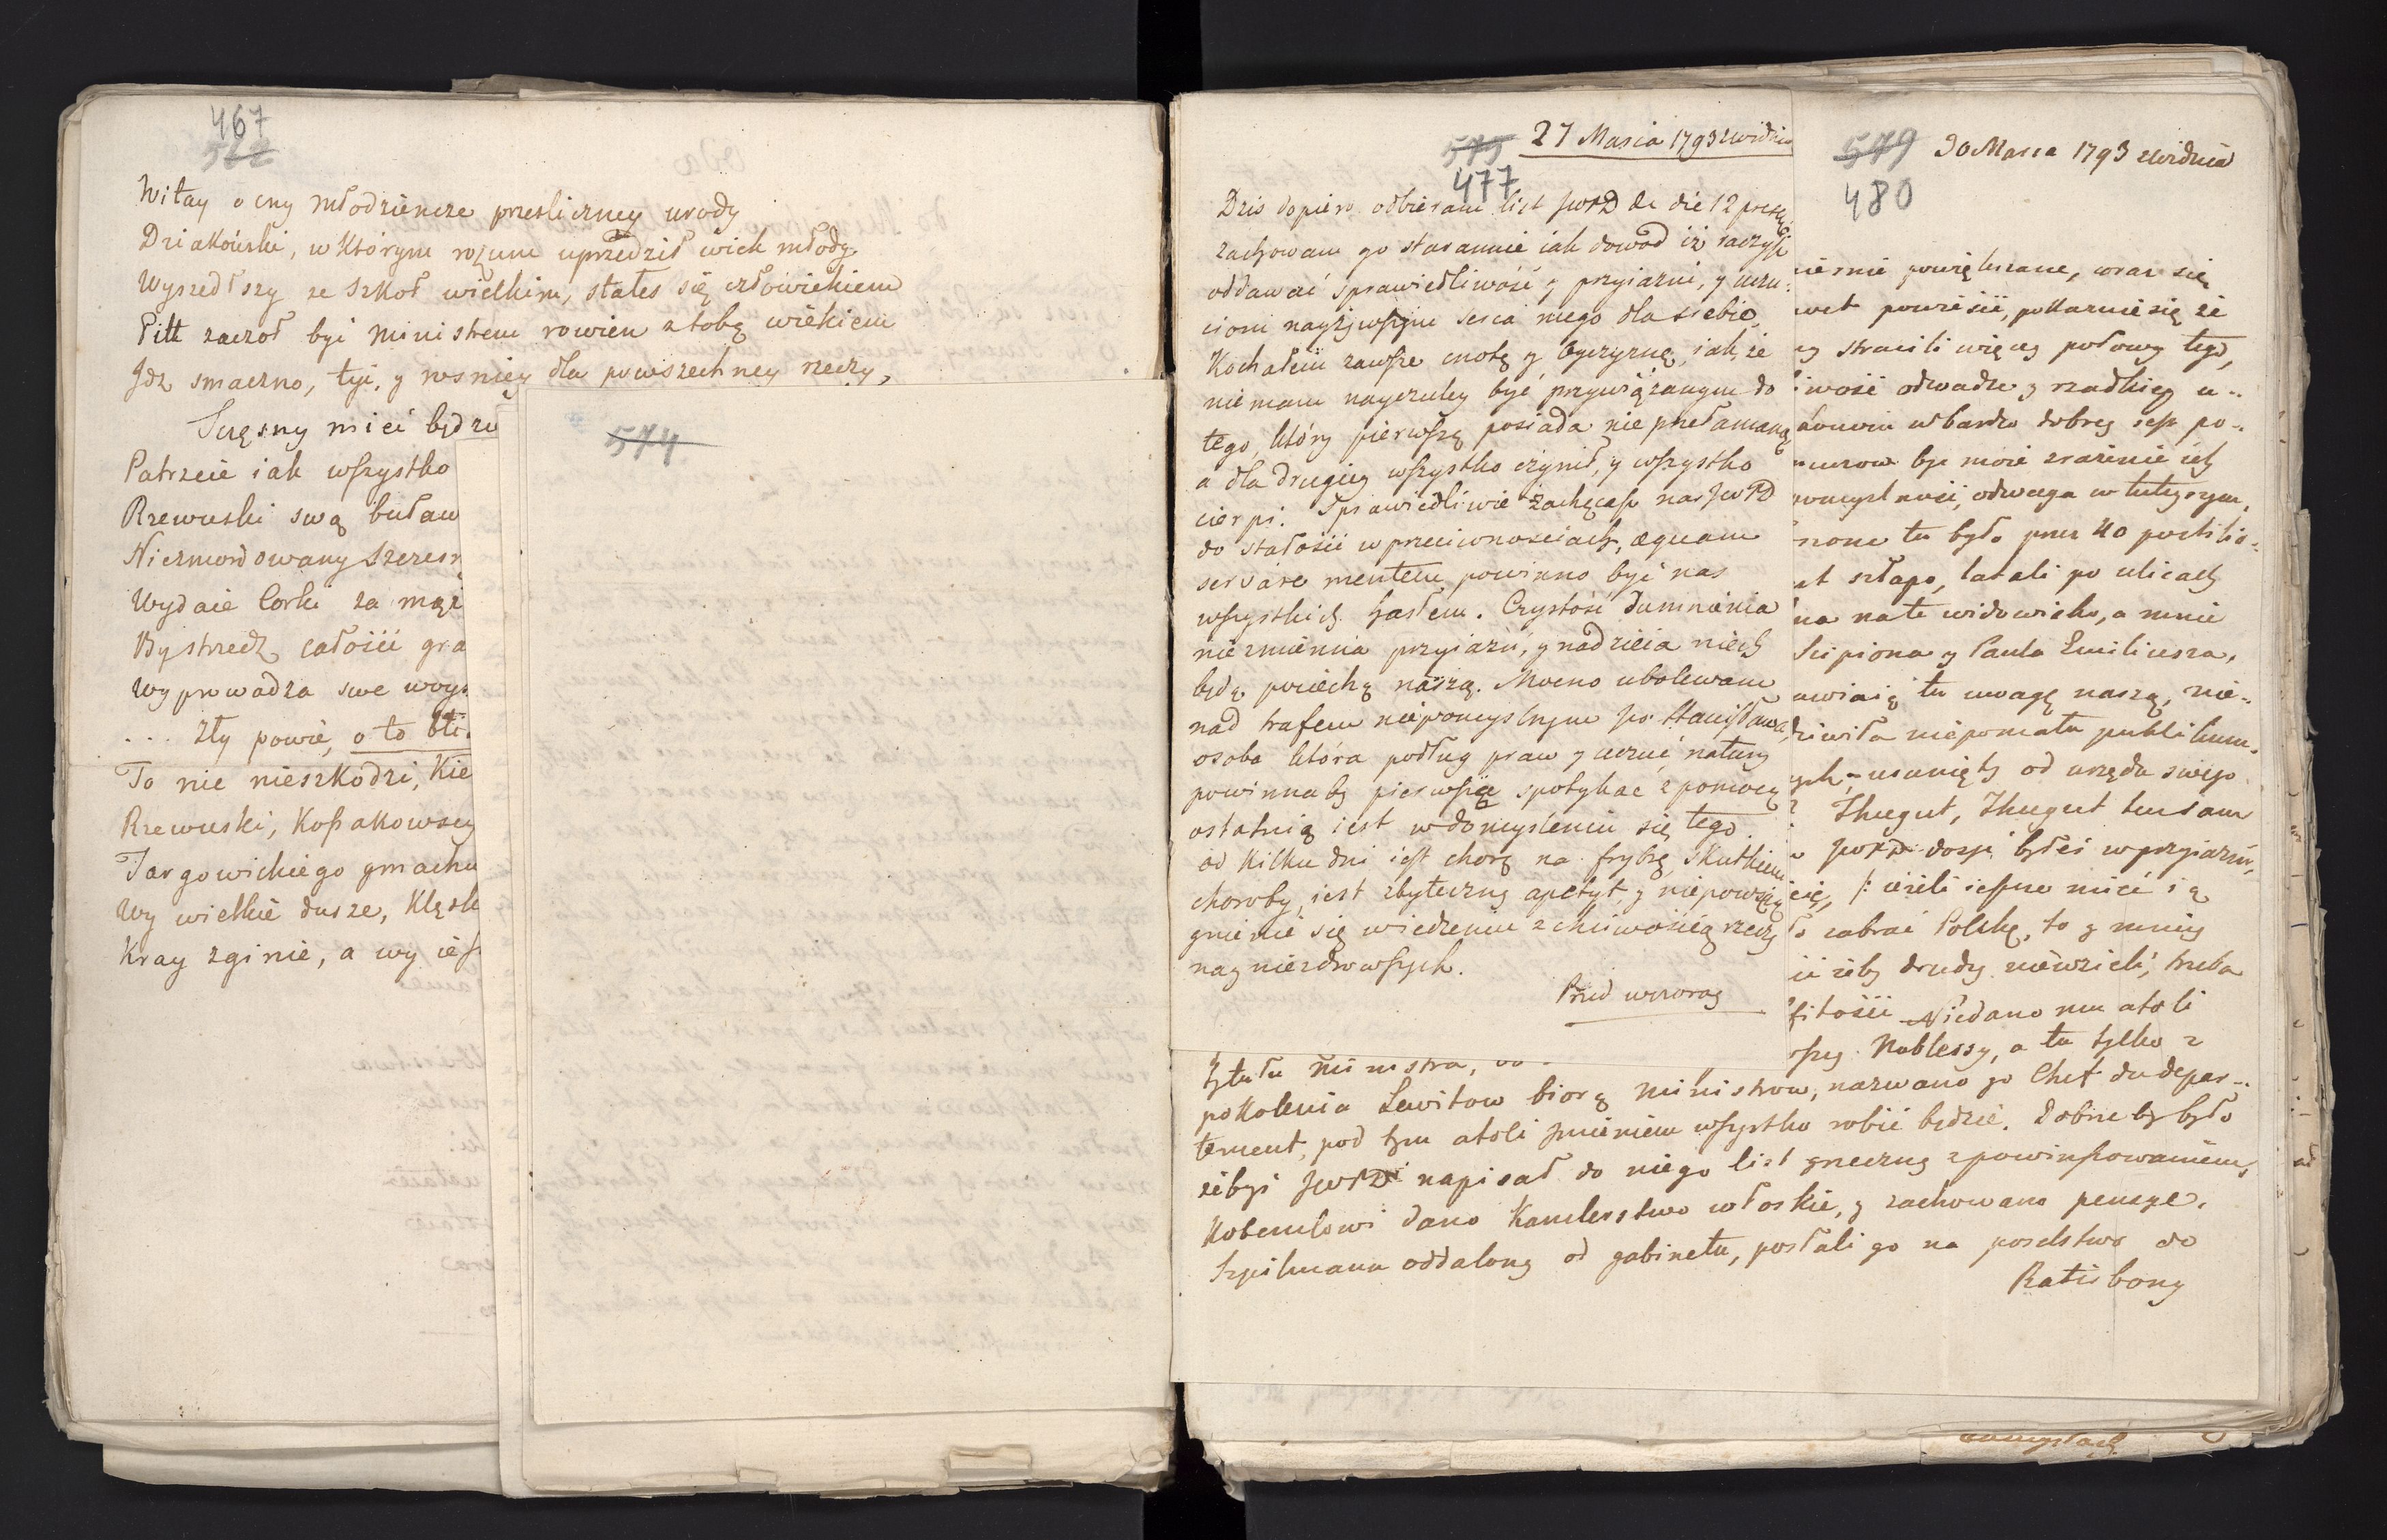 467
522
Witay o cny młodzieńcze przesliczney urody
Dziakoński, w którym rozum uprzedził wiek młody
Wyszedłszy ze szkoł wielkim, stałes się człowiekiem
Pitt zaczoł być Ministrem rowien z tobą wiekiem
Jdz smaczno, tyi, y rosniey dla powszechney rzeczy,
Patrzcie iak wszystko
Rzewuski swą buław
Niezmordowany Szczesn
Wydaie Corki za męż
Bystrzedz całości gra
Wyprowadza swe woys
... Zły powie, o to
To nie nieszkodzi, Kie
Rzewuski, Kossakowscy
Targowickiego gmachu
Wy wielkie dusze, Klęsk
Kray zginie, a wy ies
574
575 27 Marca 1793 z Widnia
477
Dzis dopiero odbieram list JWPD de die 12 praes.
zachowam go starannie iak dowod iż raczysz
oddawać sprawiedliwość y przyiazni, y uczu-
ciom nayżywszym serca mego dla siebie,
Kochałem zawsze cnotę y oyczyznę, iak że
nie mam nayczuley być przywiązanym do
tego, który pierwszą posiada nieprzełamaną
a dla drugiey wszystko czynił, y wszystko
cierpi. Sprawiedliwie zachęcasz nas JWPD
do stałości w przeciwnościach, æquam
servare mentem powinno być nas
wszystkich hasłem. Czystość sumnienia
niezmienna przyiazń, y nadzieia niech
będą pociechą naszą. Mocno ubolewam
nad trafem niepomyslnym Jo Stanisława,
osoba która podług praw y uczuć natury
powinna by pierwsza spotykac z pomocą
ostatnią iest w domysleniu się tego.
od kilku dni iest chorą na frybrę, skutkiem
choroby, iest zbyteczny apetyt, y niepowscią
gnienie się wiedzeniu z chciwością rzeczy
nayniezdrowszych.
Przed wczoray
579 30 Marca 1793 z Widnia
480
iernie powiększane, wraz się
wet powieści, pokazuie się że
ey stracili więcey połowy tego,
iwość odwadze y rzadkiey u-
nurow być może zrażenie ich
szone tu było przez 40 postilio-
t sztapo, latali po ulicach
na na te widowisko, a mnie
Scipiona y Paula Emiliusza,
awiaią tu uwagę naszą, nie-
dziwiła niepomału publikum,
ych - usunięty od urzędu swego
Thugut, Thugut ten sam
JWPD dosyć byłeś w przyiazni,
cię, /: ieżeli ieszcze mieć ią
o zabrać Polskę, to y mniey
ić żeby drudzy niewzieli, trzeba
fitości Niedano mu atoli
szey Noblessy, a tu tylko z
tytułu Ministra,
pokolenia Lewitow biorą Ministrow, nazwano go Chef du depar-
tement, pod tym atoli Jmieniem wszystko robić będzie. Dobrze by było
żebyś JWPD napisał do niego list grzeczny z powinszowaniem,
Kobenclowi dano Kanclerstwo włoskie, y zachowano pensye.
Szpilmann oddalony od gabinetu, posłali go na poselstwo do
Ratisbony